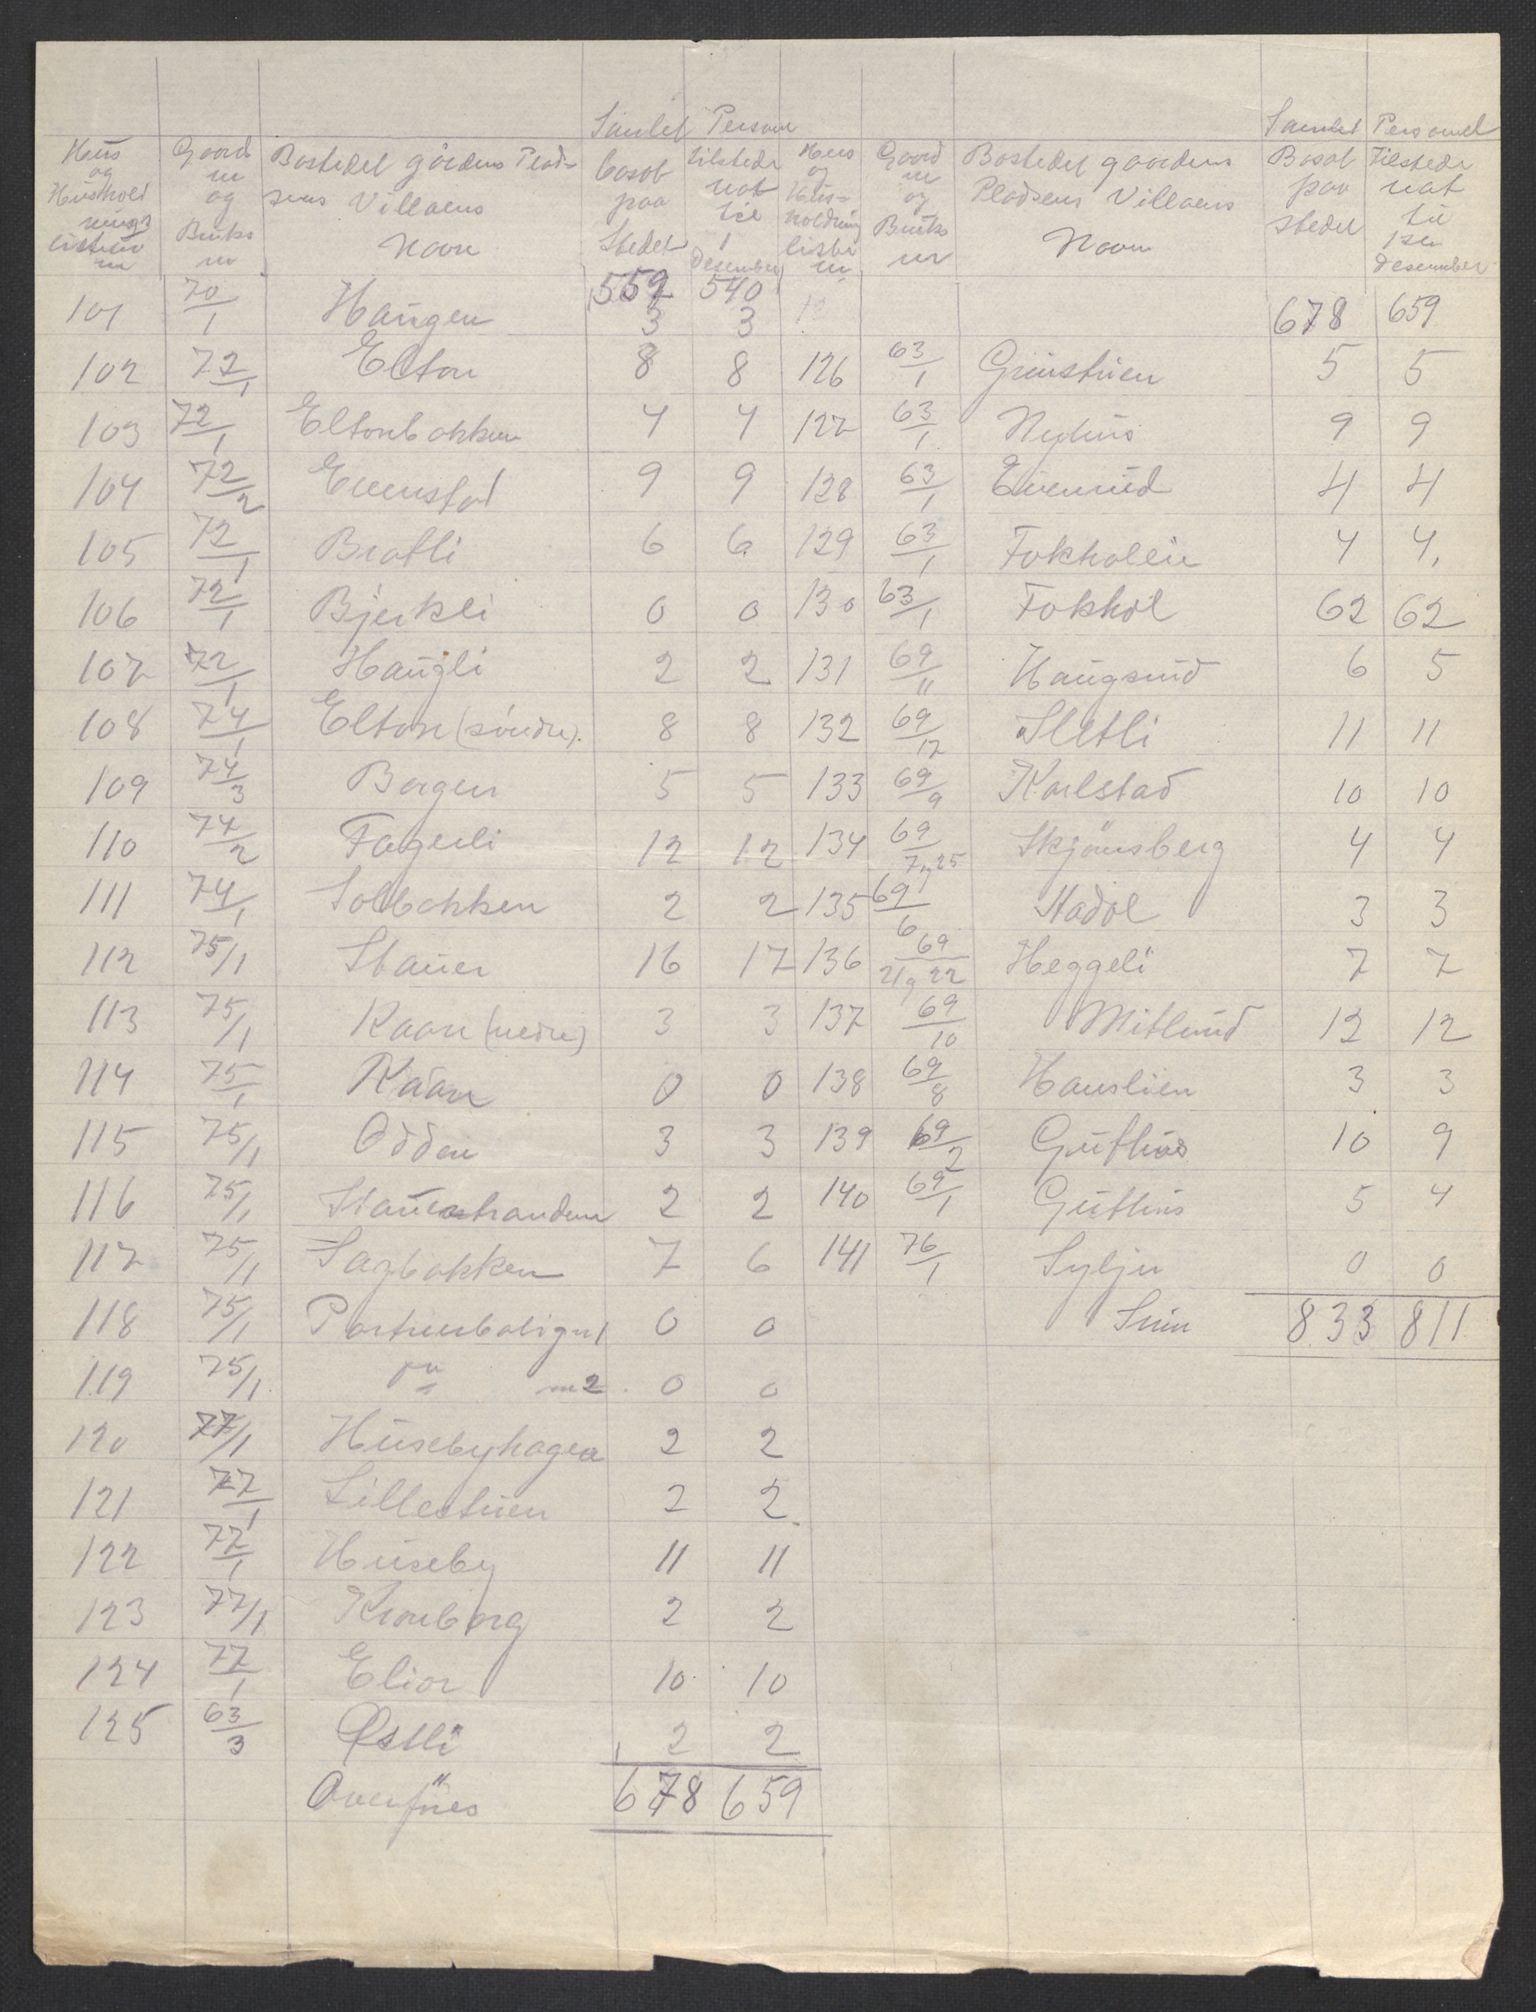 Samlet Person
Samlet Personel
Hus og Husholdnings listens nr | Gaard nr og Bruks nr | Bostedet gårdens Plad- sens Villaens Navn | bosat paa Stedet | tilstede nat til 1 Desember | Hus og Hus- holdning listen nr | Gaard nr og Bruks nr | Bostedet gaardens Pladsens Villaens Navn | Bosat paa stedet | Tilstede nat til 1ste Desember
559 540
101 70/1 Haugen 3 3 678 659
102 72/1 Elton 8 8 126 63/1 Grinstuen 5 5
103 72/1 Eltonbakken 4 4 127 63/1 Nyhus 9 9
104 72/2 Evenstad 9 9 128 63/1 Evenrud 4 4
105 72/1 Bratli 6 6 129 63/1 Fokholein 4 4.
106 72/1 Bjerkli 0 0 130 63/1 Fokhol 62 62
107 72/1 Haugli 2 2 131 69/11 Haugsrud 6 5
108 74/1 Elton (søndre). 8 8 132 69/12 Sletli 11 11
109 74/3 Bergen 5 5 133 69/9 Karlstad 10 10
110 74/2 Fagerli 12 12 134 69/7 og 25 Skjønsberg 4 4
111 74/1 Solbakken 2 2 135 69/6 Stadol 3 3
112 75/1 Stauer 16 17 136 69/21 og 22 Heggeli 7 7
113 75/1 Raan (nedre) 3 3 137 69/10 Mitlund 12 12
114 75/1 Raan 0 0 138 69/8 Hauslien 3 3
115 75/1 Odden 3 3 139 69/2 Guthus 10 9
116 75/1 Stauerstranden 2 2 140 69/1 Guthus 5 4
117 75/1 Sagbakken 7 6 141 76/1 Sylju 0 0
118 75/1 Portnerbolig nr 1 0 0 Sum 833 811
119 75/1 " nr 2. 0 0
120 77/1 Husebyhagen 2 2
121 77/1 Lillestuen 2 2
122 77/1 Huseby 11 11
123 77/1 Kronborg 2 2
124 77/1 Elior 10 10
125 63/3 Østli 2 2
Overføres 678 659